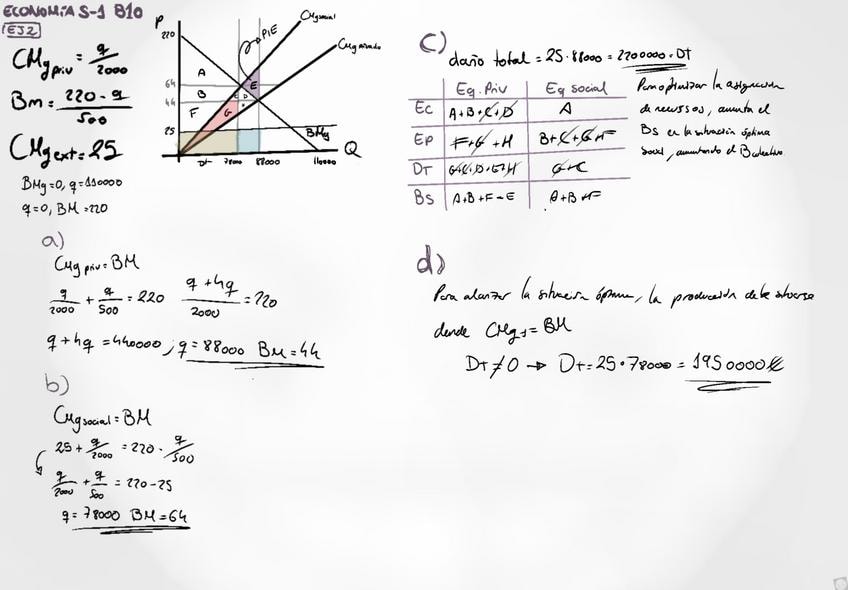 ECONOMÍA S-1 B10
EJ2
CMg priv = q/2000
Bm = 220 - q/500
CMg ext = 25
BMg=0, q=110000
q=0, BM=220
P
220
64
44
25
A
B
F
G
D
E
PIE
CMg social
CMg privado
BMg
Q
Dt
78000
88000
110000
a)
CMg priv = BM
q/2000 + q/500 = 220
q + 4q / 2000 = 220
q + 4q = 440000; q = 88000 BM = 44
b)
CMg social = BM
25 + q/2000 = 220 - q/500
q/2000 + q/500 = 220 - 25
q = 78000 BM = 64
c)
daño total = 25·88000 = 2200000 = DT
Eq. Priv
Eq social
Ec
A+B+C+D
A
Ep
F+G+H
B+C+G+F
DT
G+C
Bs
A+B+F-E
A+B+F
Para optimizar la asignación
de recursos, aumenta el
Bs en la situación óptima
social, aumentando el B colectivo.
d)
Para alcanzar la situación óptima, la producción debe situarse
donde CMg = BM
Dt ≠ 0 → Dt = 25·78000 = 1950000 €